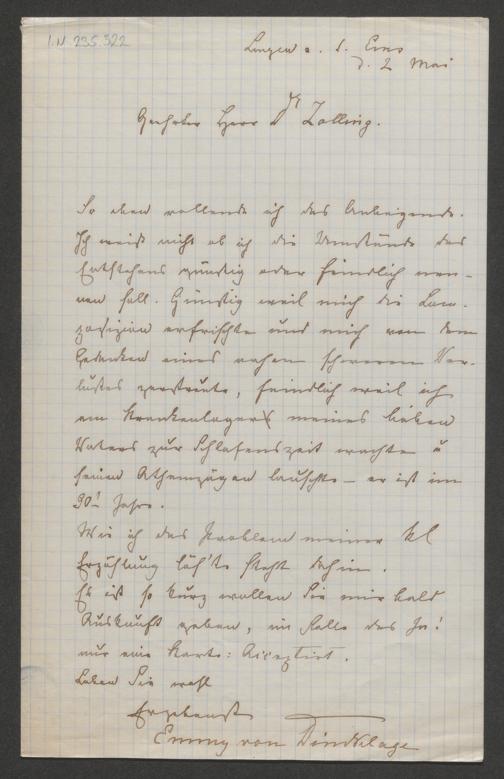 I.N. 235.322
Lingen a. d. Ems
d. 2 Mai
Geehrter Herr Dr Zolling.
So eben vollende ich das Anliegende.
Ich weiß nicht ob ich die Umstände des
Entstehens günstig oder feindlich nen-
nen soll. Günstig weil mich die Com-
posizion erfrischte und mich von dem
Gedanken eines nahen schweren Ver-
lustes zerstreute, feindlich weil ich
am Krankenlager meines lieben
Vaters zur Schlafenszeit wachte u
seinen Athemzügen lauschte – er ist im
90! Jahre.
Wie ich das Problem meiner kl
Erzählung lös'te steht dahin.
Es ist so kurz wollen Sie mir bald
Auskunft geben, im Falle des Ja!
nur eine Karte: Acceptirt.
Leben Sie wohl
Ergebenst
Emmy von Dincklage